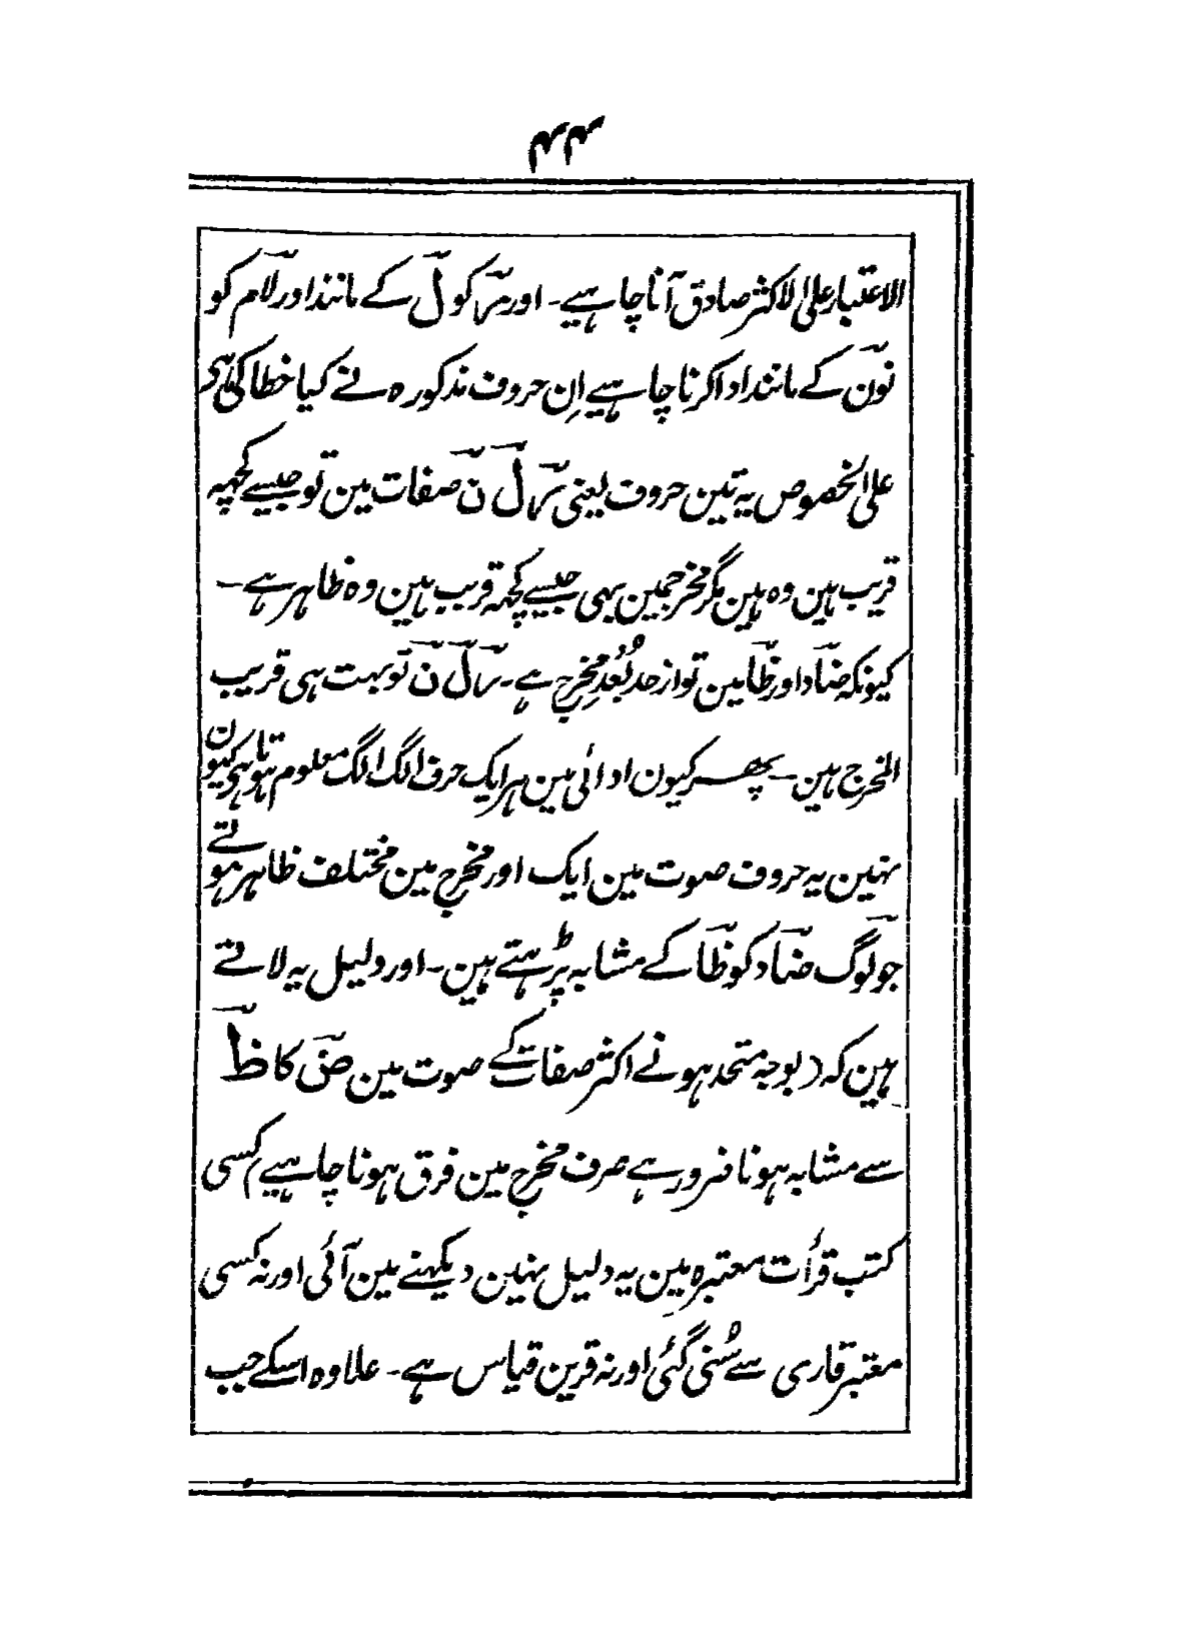 ۴۴
الاعتبار علی الاکثر صادق آنا چاہیے۔ اور رؔ کو لؔ کے مانند اور لاؔم کو
نوؔن کے مانند ادا کرنا چاہیے اِن حروف مذکورہ نے کیا خطا کی ہی
علی الخصوص یہ تین حروف یعنی رؔ لؔ نؔ صفات مین تو جیسے کچہہ
قریب ہین وہ ہین مگر مخرجمین بہی جیسے کچہہ قریب ہین وہ ظاہر ہے۔
کیونکہ ضاؔد اور ظاؔ مین تو ازحد بُعد مخرج ہے۔ رؔ لؔ نؔ تو بہت ہی قریب
المخرج ہین۔ پھر کیون ادائی مین ہر ایک حرف الگ الگ معلوم ہوتا ہی کیون
نہین یہ حروف صوت مین ایک اور مخرج مین مختلف ظاہر ہوتے
جو لوگ ضاؔد کو ظاؔ کے مشابہ پڑہتے ہین۔ اور دلیل یہ لاتے
ہین کہ (بوجہ متحد ہونے اکثر صفات کے صوت مین ضؔ کا ظؔ
سے مشابہ ہونا ضرور ہے صرف مخرج مین فرق ہونا چاہیے) کسی
کتب قرأت معتبرہ مین یہ دلیل نہین دیکہنے مین آئی اور نہ کسی
معتبر قاری سے سُنی گئی اور نہ قرین قیاس ہے۔ علاوہ اسکے جب